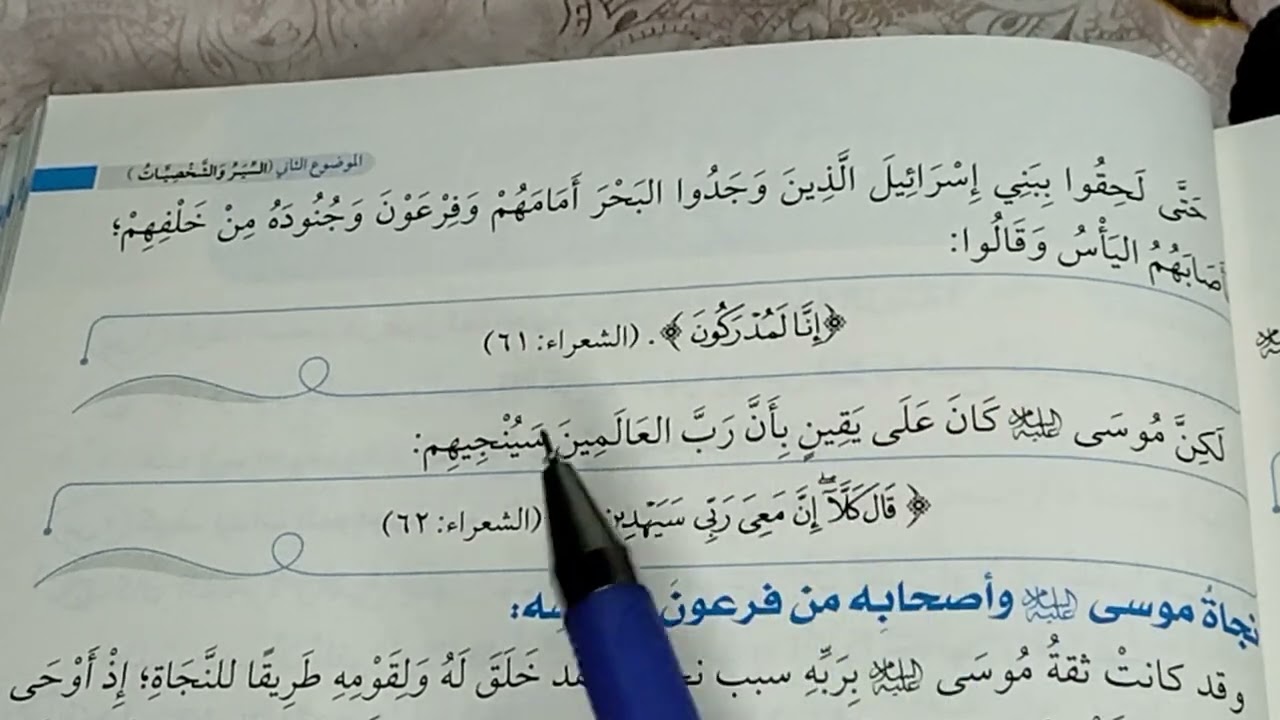 الموضوع الثاني (السِّيَرُ وَالشَّخْصِيَّاتُ)
حَتَّى لَحِقُوا بِبَنِي إِسْرَائِيلَ الَّذِينَ وَجَدُوا البَحْرَ أَمَامَهُمْ وَفِرْعَوْنَ وَجُنُودَهُ مِنْ خَلْفِهِمْ؛
أَصَابَهُمُ اليَأْسُ وَقَالُوا:
﴿إِنَّا لَمُدْرَكُونَ﴾. (الشعراء: ٦١)
لَكِنَّ مُوسَى عليه السلام كَانَ عَلَى يَقِينٍ بِأَنَّ رَبَّ العَالَمِينَ سَيُنْجِيهِم:
﴿قَالَ كَلَّآ ۖ إِنَّ مَعِىَ رَبِّى سَيَهْدِينِ (الشعراء: ٦٢)
نجاةُ موسى عليه السلام وأصحابِه من فرعونَ
وقد كانتْ ثقةُ مُوسَى عليه السلام بِرَبِّهِ سبب خَلَقَ لَهُ وَلِقَوْمِهِ طَرِيقًا للنَّجَاةِ؛ إِذْ أَوْحَى